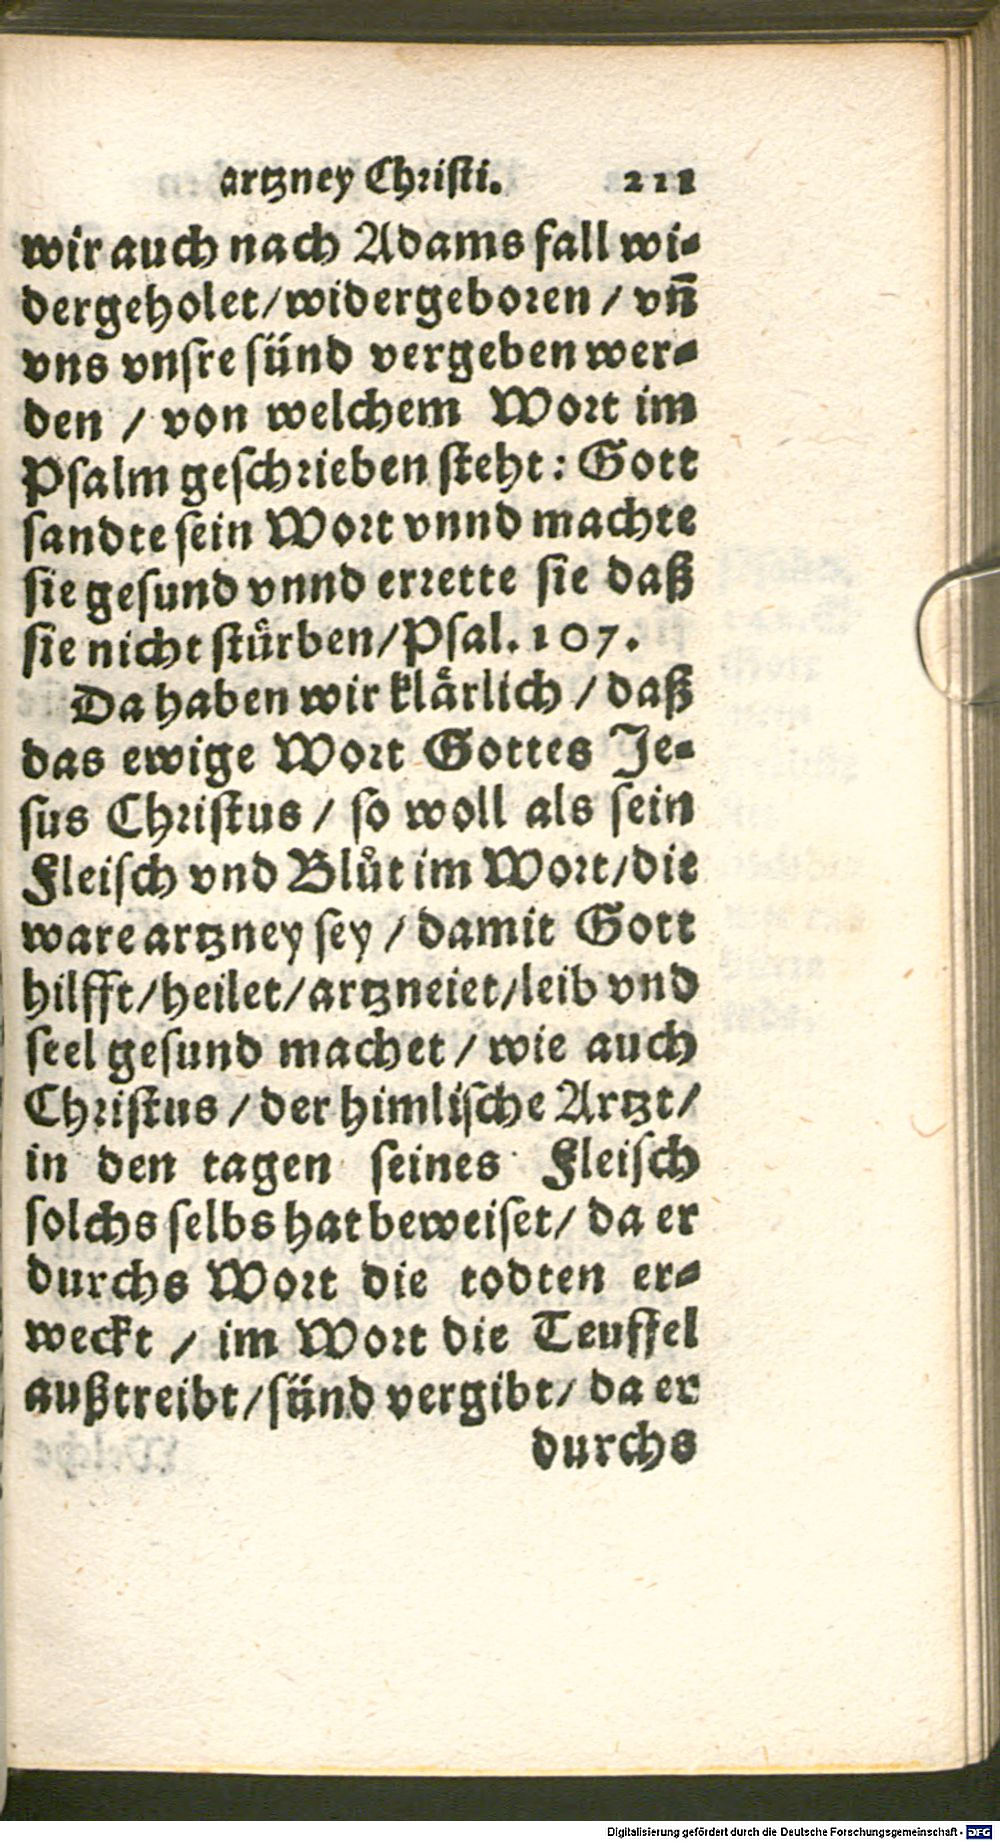 artzney Christi. 211
wir auch nach Adams fall wi-
dergeholet/widergeboren / vn̄
vns vnsre sünd vergeben wer-
den / von welchem Wort im
Psalm geschrieben steht: Gott
sandte sein Wort vnnd machte
sie gesund vnnd errette sie daß
sie nicht stürben/Psal. 107.
Da haben wir klärlich / daß
das ewige Wort Gottes Je-
sus Christus / so woll als sein
Fleisch vnd Blůt im Wort/die
ware artzney sey / damit Gott
hilfft/heilet/artzneiet/leib vnd
seel gesund machet / wie auch
Christus / der himlische Artzt/
in den tagen seines Fleisch
solchs selbs hat beweiset/ da er
durchs Wort die todten er-
weckt / im Wort die Teuffel
außtreibt/sünd vergibt/ da er
durchs
Digitalisierung gefördert durch die Deutsche Forschungsgemeinschaft - DFG